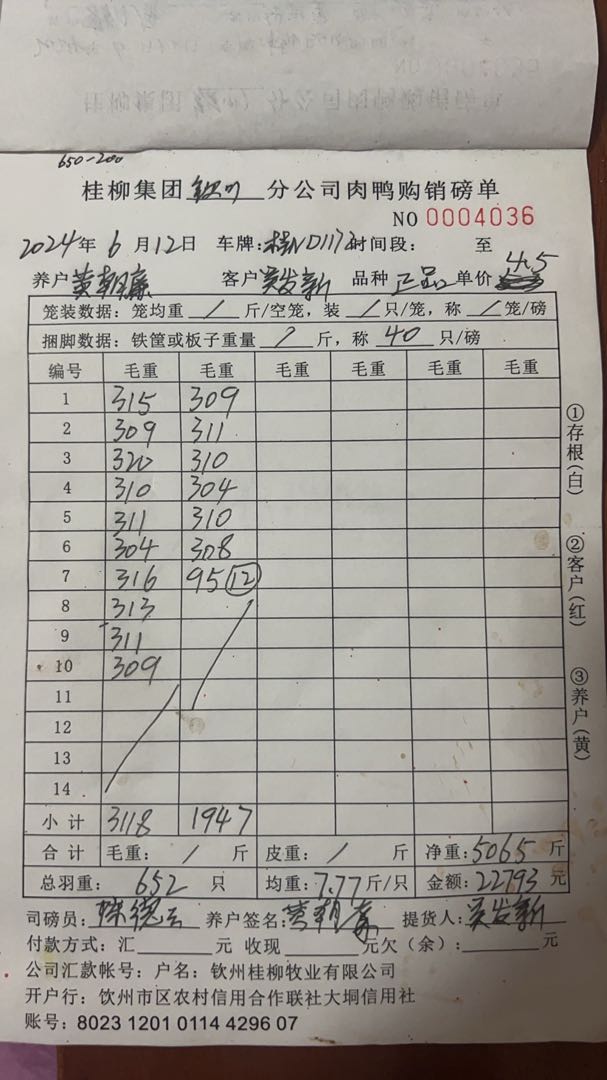 650-200
桂柳集团 钦州 分公司肉鸭购销磅单
NO 0004036
2024年 6 月 12 日 车牌: 桂ND1172 时间段: 至
4.5
养户 黄朝廉 客户 吴发新 品种 正品 单价
笼装数据: 笼均重 / 斤/空笼, 装 / 只/笼, 称 / 笼/磅
捆脚数据: 铁筐或板子重量 / 斤, 称 40 只/磅
编号 毛重 毛重 毛重 毛重 毛重 毛重
1 315 309
2 309 311
3 320 310
4 310 304
5 311 310
6 304 308
7 316 95 12
8 313
9 311
10 309
11
12
13
14
小计 3118 1947
合计 毛重: / 斤 皮重: / 斤 净重: 5065 斤
总羽重: 652 只 均重: 7.77 斤/只 金额: 22793 元
司磅员: 陈德 养户签名: 黄朝 提货人: 吴发新
付款方式: 汇 元 收现 元欠(余): 元
公司汇款帐号: 户名: 钦州桂柳牧业有限公司
开户行: 饮州市区农村信用合作联社大垌信用社
账号: 8023 1201 0114 4296 07
①存根(白)
②客户(红)
③养户(黄)